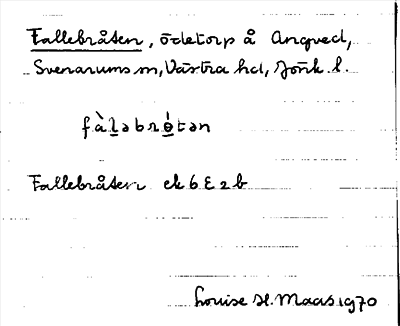 Fallebråten, ödetorp å Angved,
Svenarums sn, Västra hd, Jönk. l.
fàlәbrótәn
Fallebråten ek 6 E 2 b
Louise H. Maas 1970